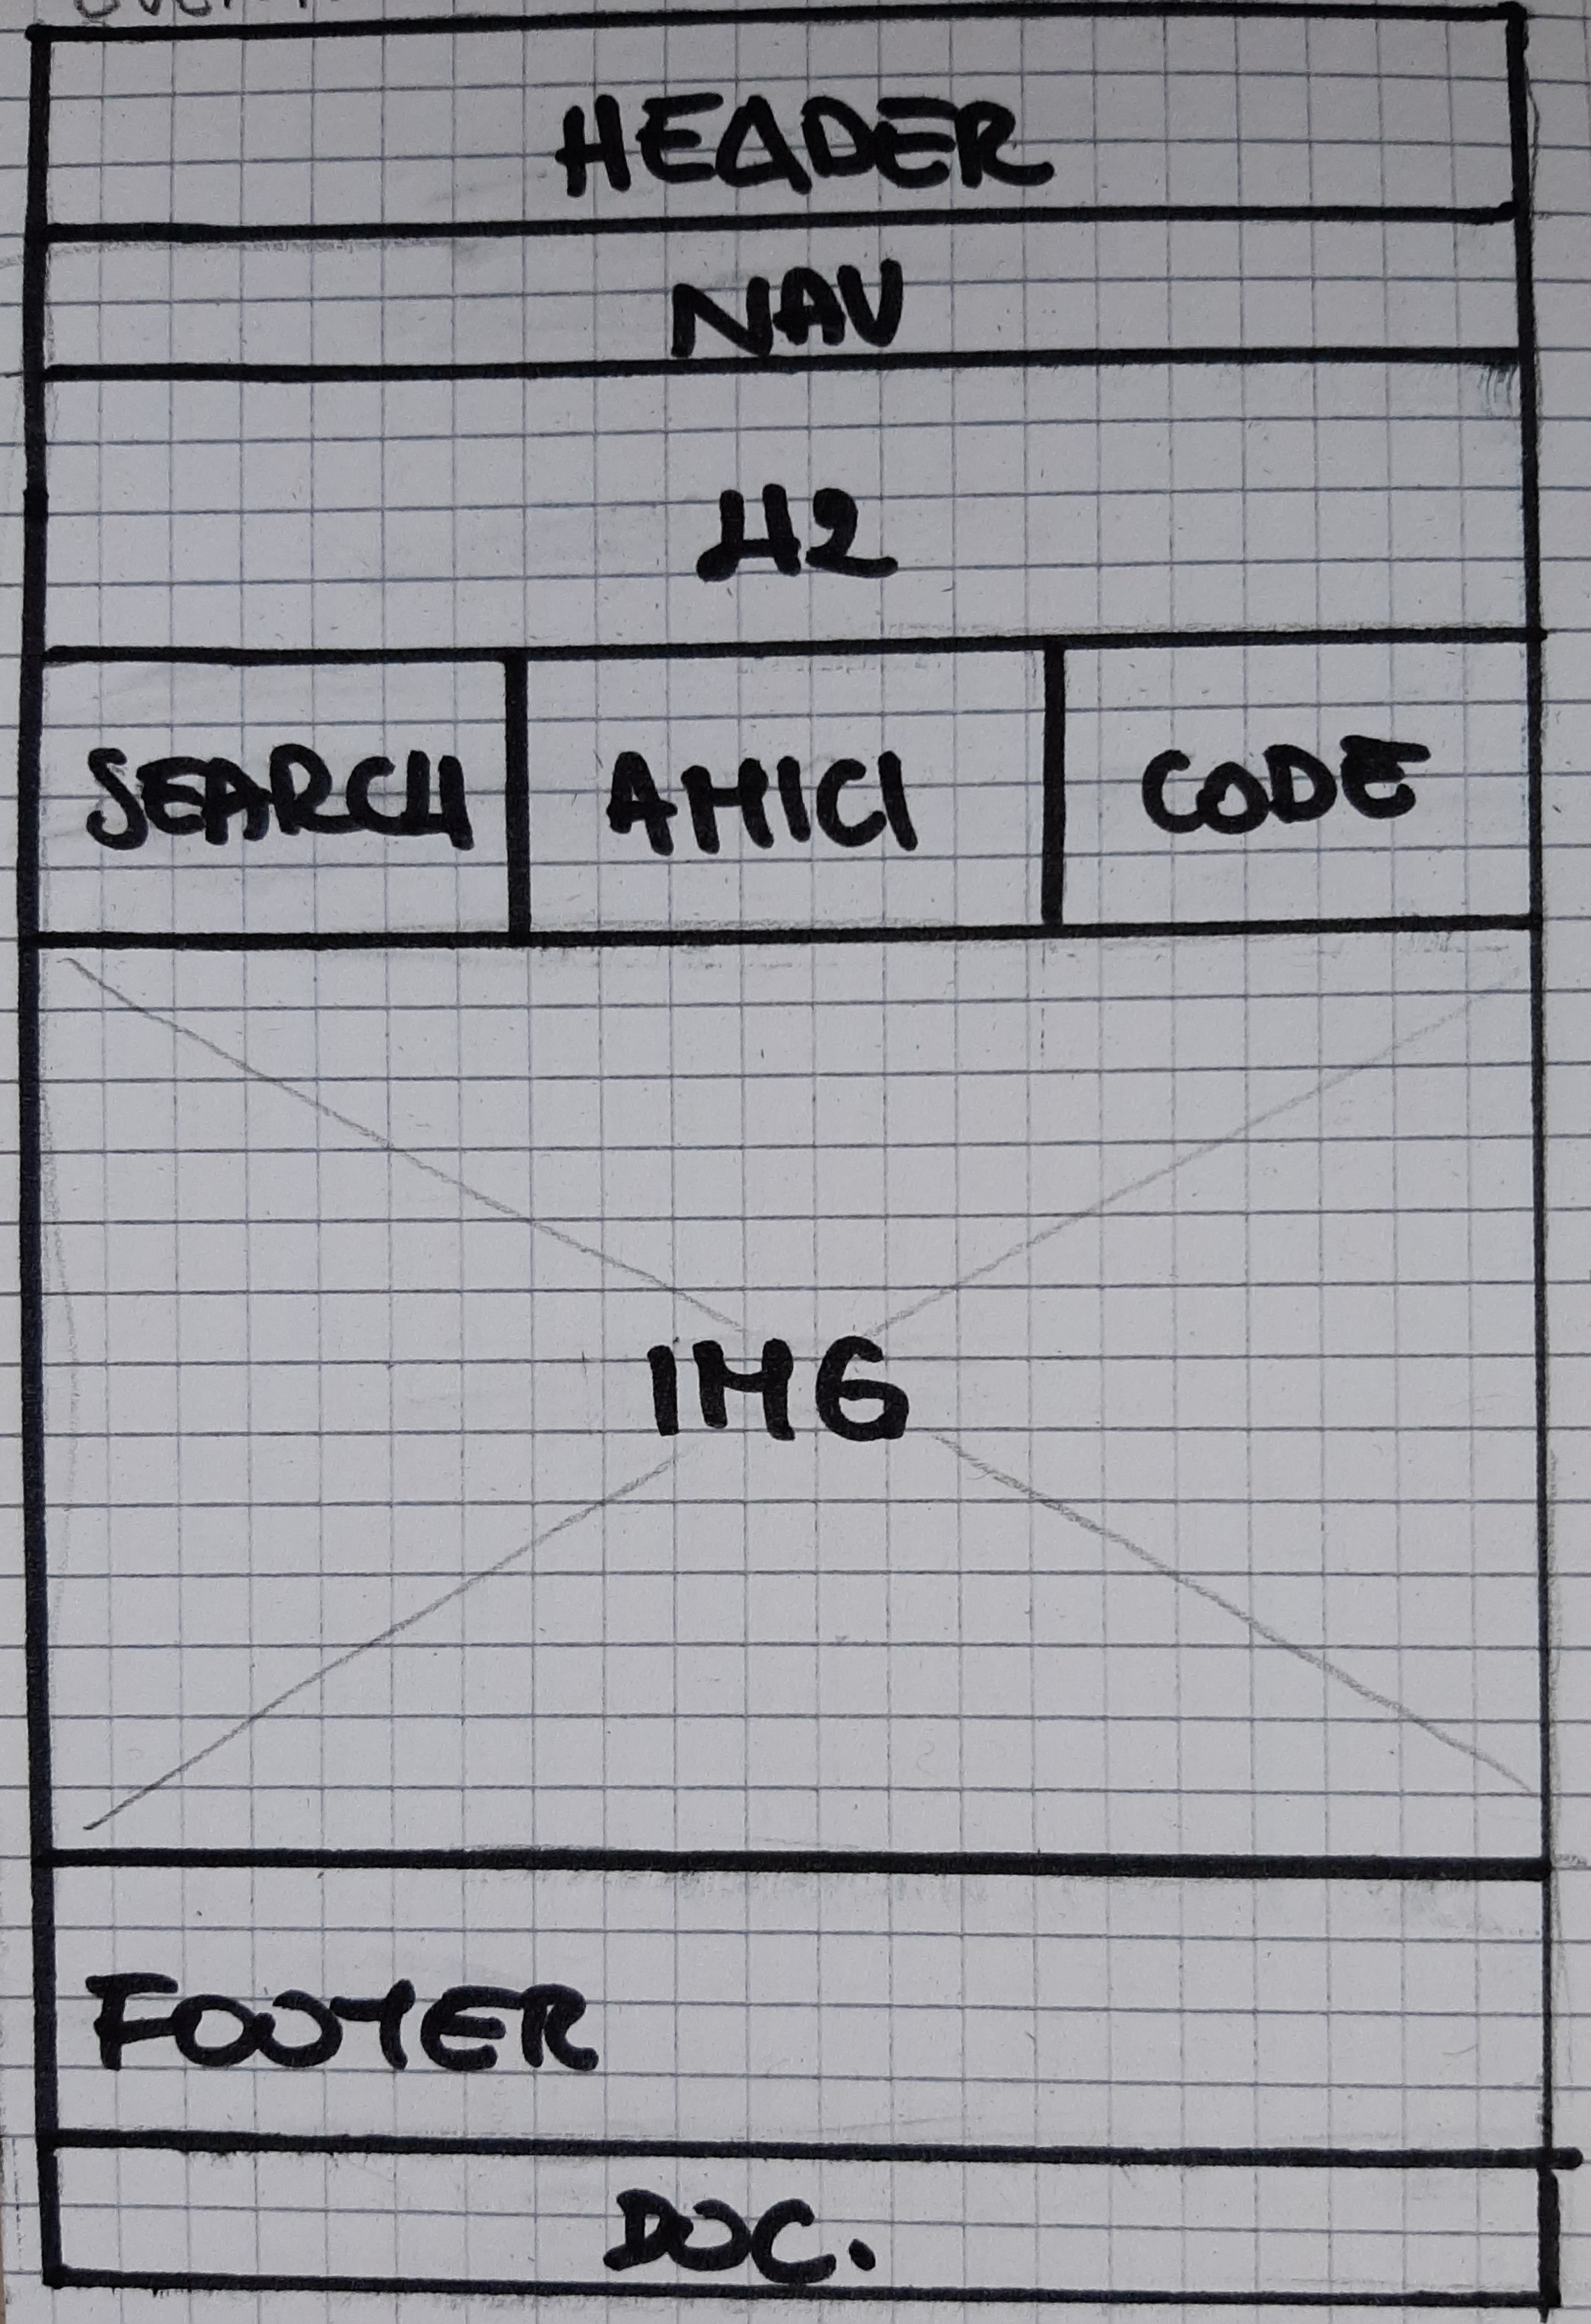 HEADER
NAV
H2
SEARCH AMICI CODE
IMG
FOOTER
DOC.